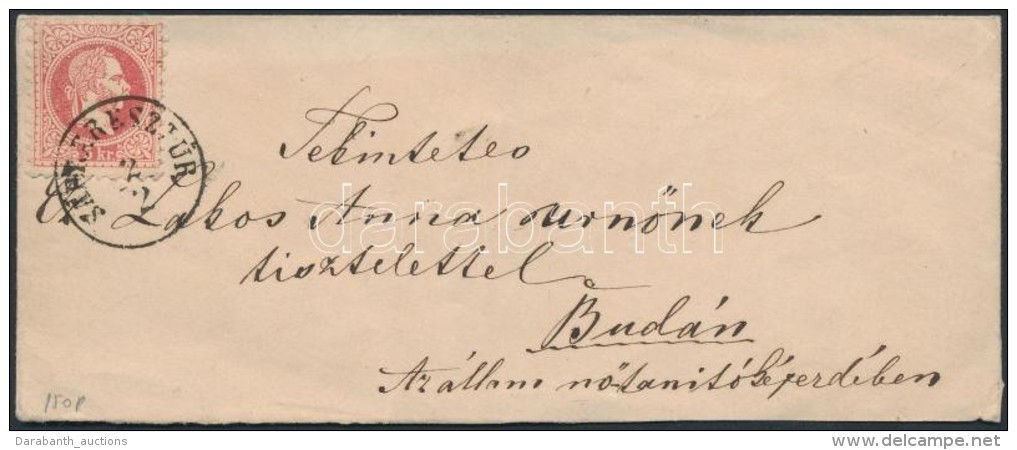 kr.
2/2
Tekintetes
Lakos Anna urnőnek
tisztelettel
Budán
Az állam nőtanitóképezdében
150P
darabanth
Darabanth_auctions
www.delcampe.net